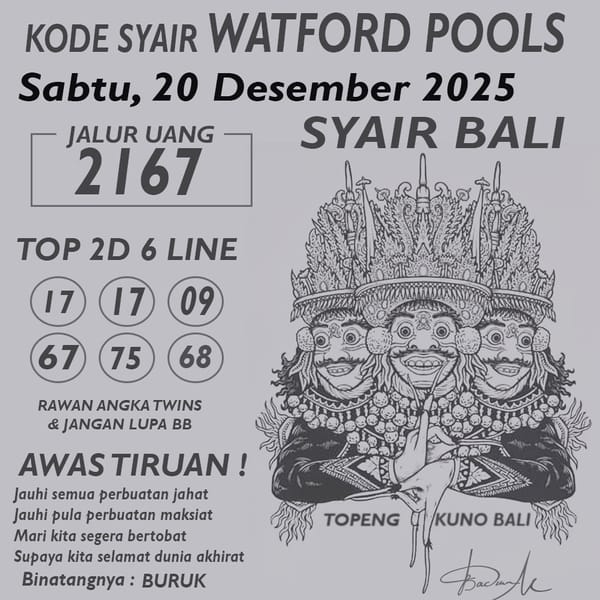 KODE SYAIR WATFORD POOLS
Sabtu, 20 Desember 2025
JALUR UANG
2167
SYAIR BALI
TOP 2D 6 LINE
17 17 09
67 75 68
RAWAN ANGKA TWINS
& JANGAN LUPA BB
AWAS TIRUAN !
Jauhi semua perbuatan jahat
Jauhi pula perbuatan maksiat
Mari kita segera bertobat
Supaya kita selamat dunia akhirat
Binatangnya : BURUK
TOPENG KUNO BALI